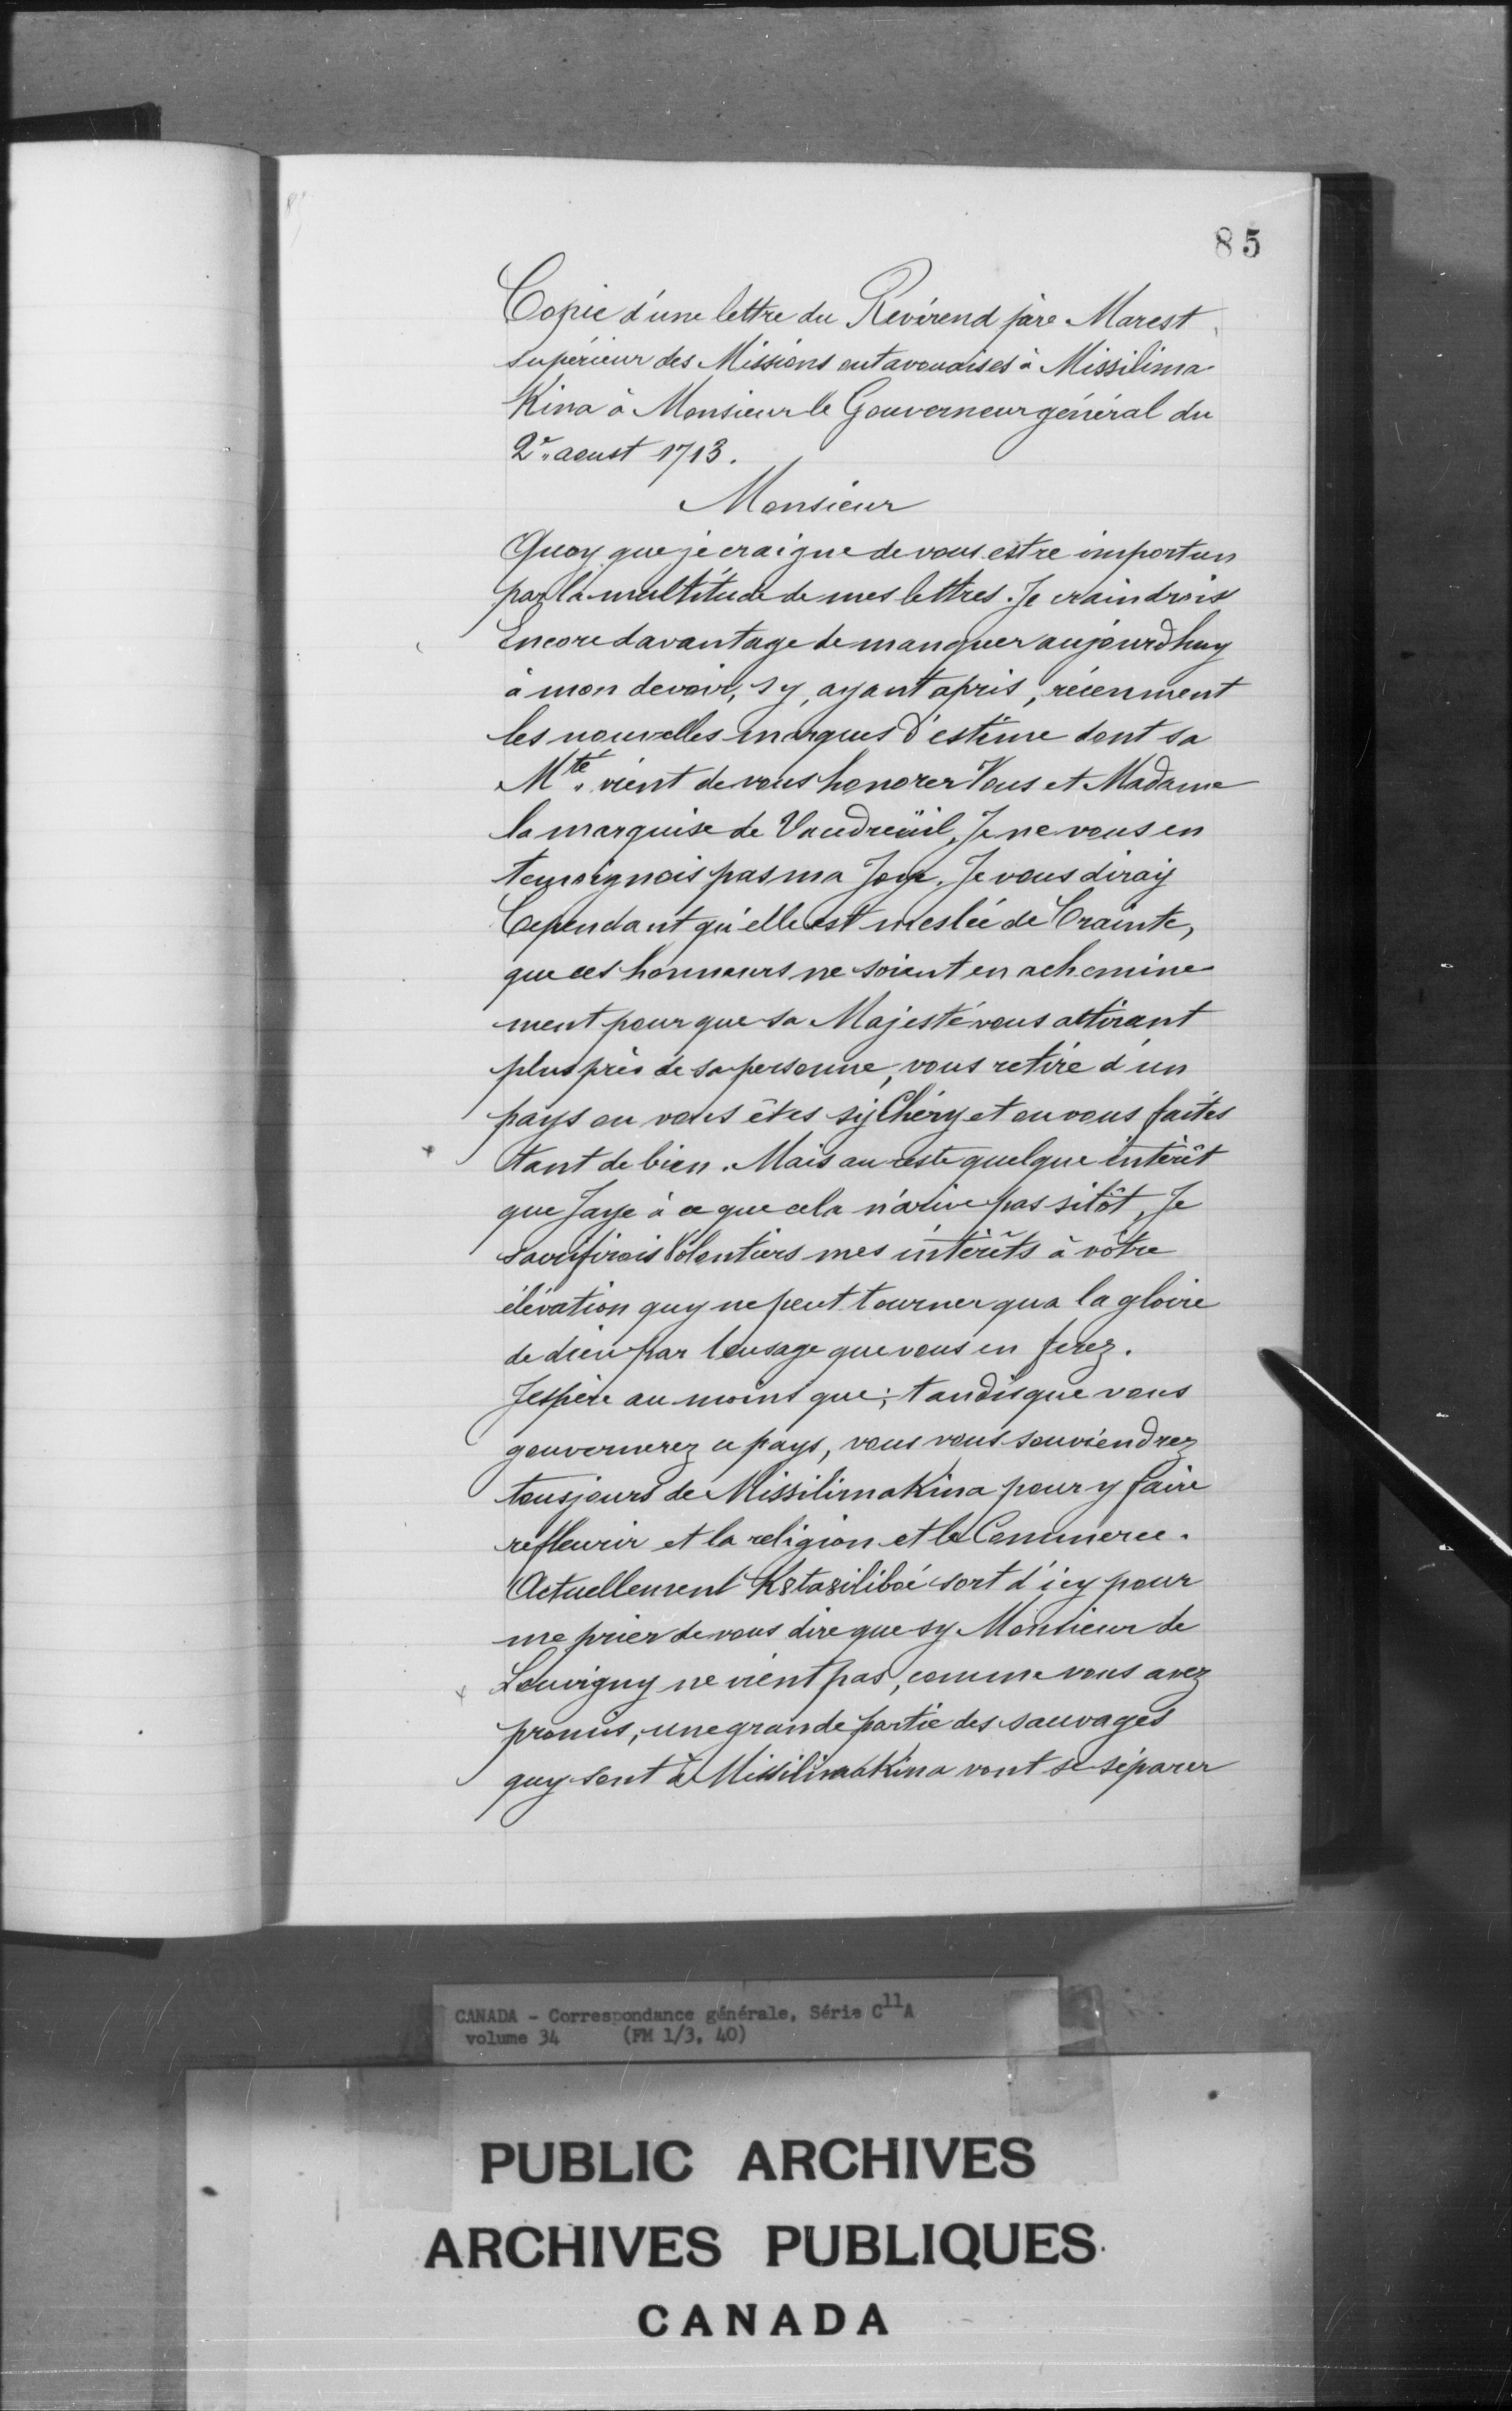 85
Copie d'une lettre du Révérend père Marest
supérieur des Missions outavouaises à Missilima
Kina à Monsieur le Gouverneur général du
2e aoust 1713.
Monsieur
Quoy que je craigne de vous estre importun
par la multitude de mes lettres. Je craindrois
Encore davantage de manquer aujourdhuy
à mon devoir, sy, ayant apris, récemment
les nouvelles marques d'estime dont sa
Mté. vient de vous honorer Vous et Madame
la marquise de Vaudreüil, Je ne vous en
temoignois pas ma Joye. Je vous diray
Cependant qu'elle est meslée de Crainte,
que ces honneurs ne soient en achemine
ment pour que sa Majesté vous attirant
plus près de sa personne, vous retire d'un
pays ou vous êtes sy Chéry et ou vous faites
tant de bien. Mais au reste quelque intérêt
que Jaye à ce que cela n'arive pas sitôt, Je
sacrifirois Volontiers mes intérêts à vôtre
élévation quy ne peut tourner qua la gloire
de dieu par lousage que vous en ferez.
Jespère au moins que; tandisque vous
gouvernerez ce pays, vous vous souviendrez
tousjours de Missilimakina pour y faire
refleurir et la religion et le Commerce.
Actuellement K8ta8iliboé sort d'icy pour
me prier de vous dire que sy Monsieur de
Louvigny ne vient pas, comme vous avez
promis, une grande partie des sauvages
quy sont à Missilimakina vont se séparer
CANADA - Correspondance générale, Série C11A
volume 34 (FM 1/3, 40)
PUBLIC ARCHIVES
ARCHIVES PUBLIQUES
CANADA